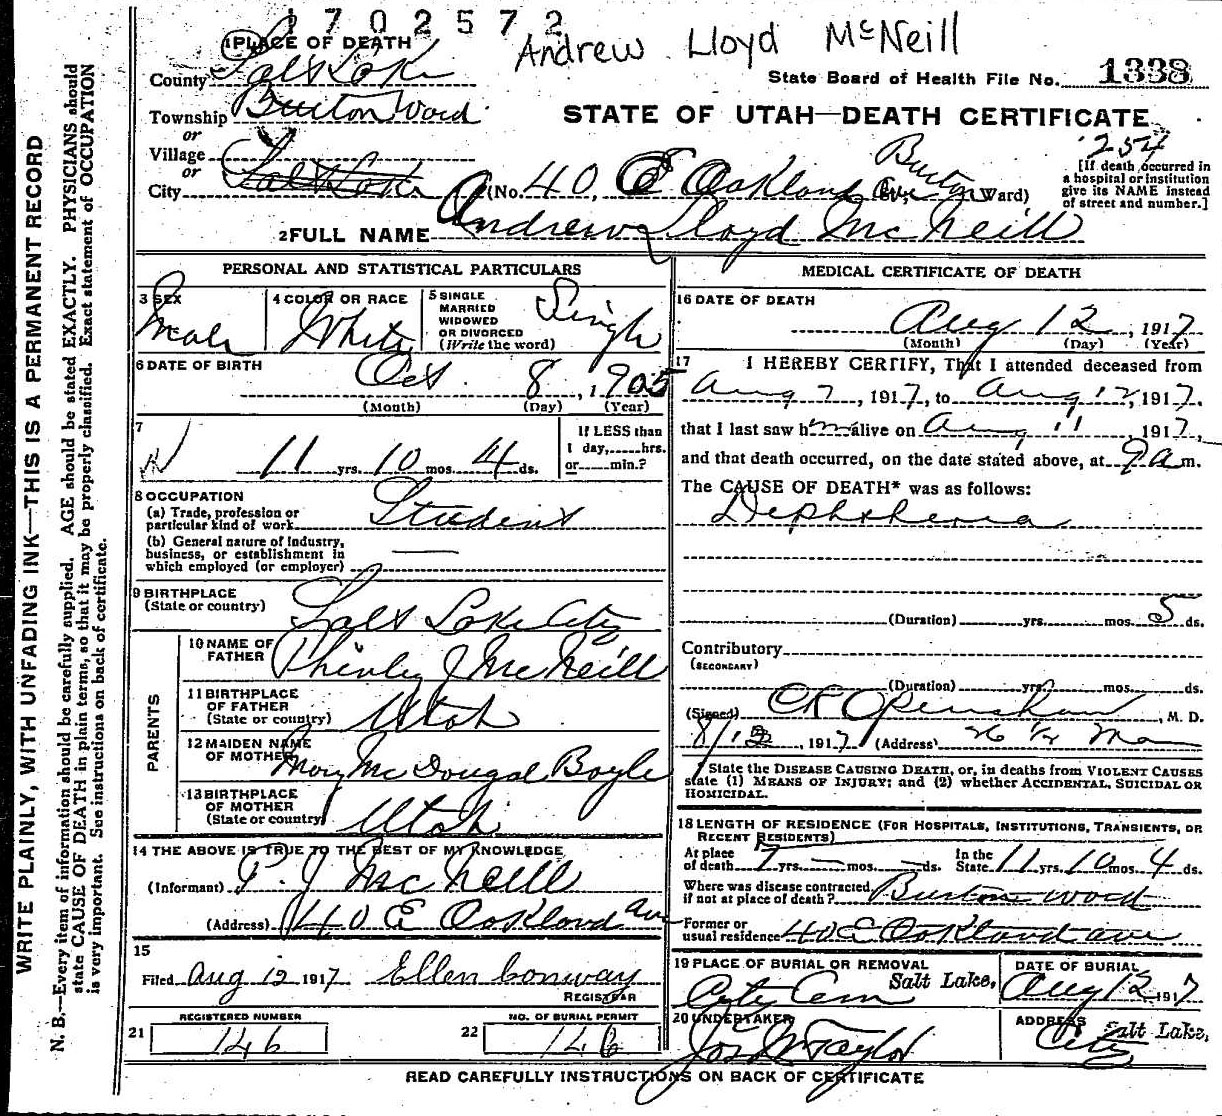 1702572
Andrew Lloyd McNeill
1 PLACE OF DEATH
County Salt Lake
State Board of Health File No. 1338
Township Burton Ward
STATE OF UTAH—DEATH CERTIFICATE
or
Village
254
or
City Salt Lake (No. 40 E Oakland Ave, Burton Ward)
[If death occurred in a hospital or institution give its NAME instead of street and number.]
2 FULL NAME Andrew Lloyd McNeill
PERSONAL AND STATISTICAL PARTICULARS
3 SEX
Male
4 COLOR OR RACE
White
5 SINGLE
MARRIED
WIDOWED
OR DIVORCED
(Write the word)
Single
6 DATE OF BIRTH
Oct. 8, 1905
(Month) (Day) (Year)
7
11 yrs. 10 mos. 4 ds.
If LESS than
1 day, hrs.
or min.?
8 OCCUPATION
(a) Trade, profession or
particular kind of work Student
(b) General nature of Industry,
business, or establishment in
which employed (or employer)
9 BIRTHPLACE
(State or country)
Salt Lake City
PARENTS
10 NAME OF
FATHER
J McNeill
11 BIRTHPLACE
OF FATHER
(State or country) Utah
12 MAIDEN NAME
OF MOTHER Mary McDougal Boyle
13 BIRTHPLACE
OF MOTHER
(State or country) Utah
14 THE ABOVE IS TRUE TO THE BEST OF MY KNOWLEDGE
(Informant) P. J McNeill
(Address) 40 E Oakland Ave
15
Filed Aug 12 1917 Ellen Conway
REGISTRAR
REGISTERED NUMBER
21 146
NO. OF BURIAL PERMIT
22 146
MEDICAL CERTIFICATE OF DEATH
16 DATE OF DEATH
Aug 12, 1917
(Month) (Day) (Year)
17 I HEREBY CERTIFY, That I attended deceased from
Aug 7, 1917, to Aug 12, 1917.
that I last saw him alive on Aug 11 1917,
and that death occurred, on the date stated above, at 9 a m.
The CAUSE OF DEATH* was as follows:
Diphtheria
(Duration) yrs. mos. 5 ds.
Contributory
(SECONDARY)
(Duration) yrs. mos. ds.
(Signed) Openshaw, M. D.
8/12, 1917 (Address) 26 1/2 Main
* State the DISEASE CAUSING DEATH, or, in deaths from VIOLENT CAUSES
state (1) MEANS OF INJURY; and (2) whether ACCIDENTAL, SUICIDAL OR
HOMICIDAL.
18 LENGTH OF RESIDENCE (FOR HOSPITALS, INSTITUTIONS, TRANSIENTS, OR
RECENT RESIDENTS)
At place
of death 7 yrs. — mos. — ds.
In the
State 11 yrs. 10 mos. 4 ds.
Where was disease contracted
if not at place of death? Burton Ward
Former or
usual residence 40 E Oakland ave
19 PLACE OF BURIAL OR REMOVAL
Salt Lake,
City Cem
DATE OF BURIAL
Aug 12 1917
20 UNDERTAKER
Jos Taylor
ADDRESS
Salt Lake,
City
READ CAREFULLY INSTRUCTIONS ON BACK OF CERTIFICATE
WRITE PLAINLY, WITH UNFADING INK—THIS IS A PERMANENT RECORD
N. B.—Every item of information should be carefully supplied. AGE should be stated EXACTLY. PHYSICIANS should
state CAUSE OF DEATH in plain terms, so that it may be properly classified. Exact statement of OCCUPATION
is very important. See instructions on back of certificate.